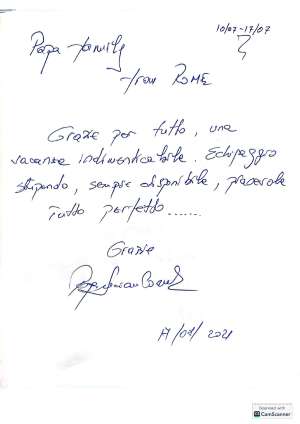 10/07-17/07
Papa family
from ROME
Grazie per tutto, una
vacanza indimenticabile. Echipaggio
stupendo, sempre disponibile, piacevole
Tutto perfetto......
Grazie
17/07/2021
Scanned with
CamScanner